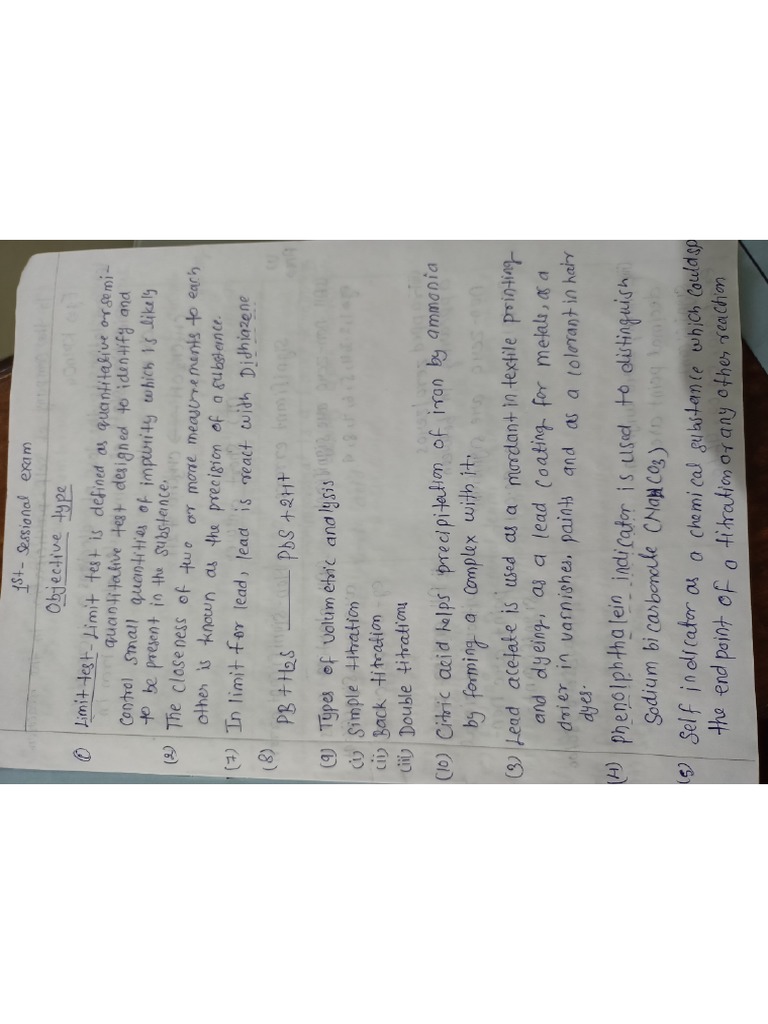 1st - Sessional exam
Objective type
(1) Limit test - Limit test is defined as quantitative or semi-
quantitative test designed to identify and
control small quantities of impurity which is likely
to be present in the substance.
(2) The closeness of two or more measurements to each
other is known as the precision of a substance.
(7) In limit for lead, lead is react with Dithiazene
(8) PB + H2S ____ PbS + 2H+
(9) Types of volumetric analysis
(i) Simple titration
(ii) Back titration
(iii) Double titrations
(10) Citric acid helps precipitation of iran by ammonia
by forming a complex with it.
(3) Lead acetate is used as a mordant in textile printing
and dyeing, as a lead coating for metals, as a
drier in varnishes, paints and as a colorant in hair
dyes.
(4) Phenolphthalein indicator is used to distinguish
Sodium bi carbonate (NaHCO3)
(5) Self indicator as a chemical substance which could sp
the end point of a titration or any other reaction